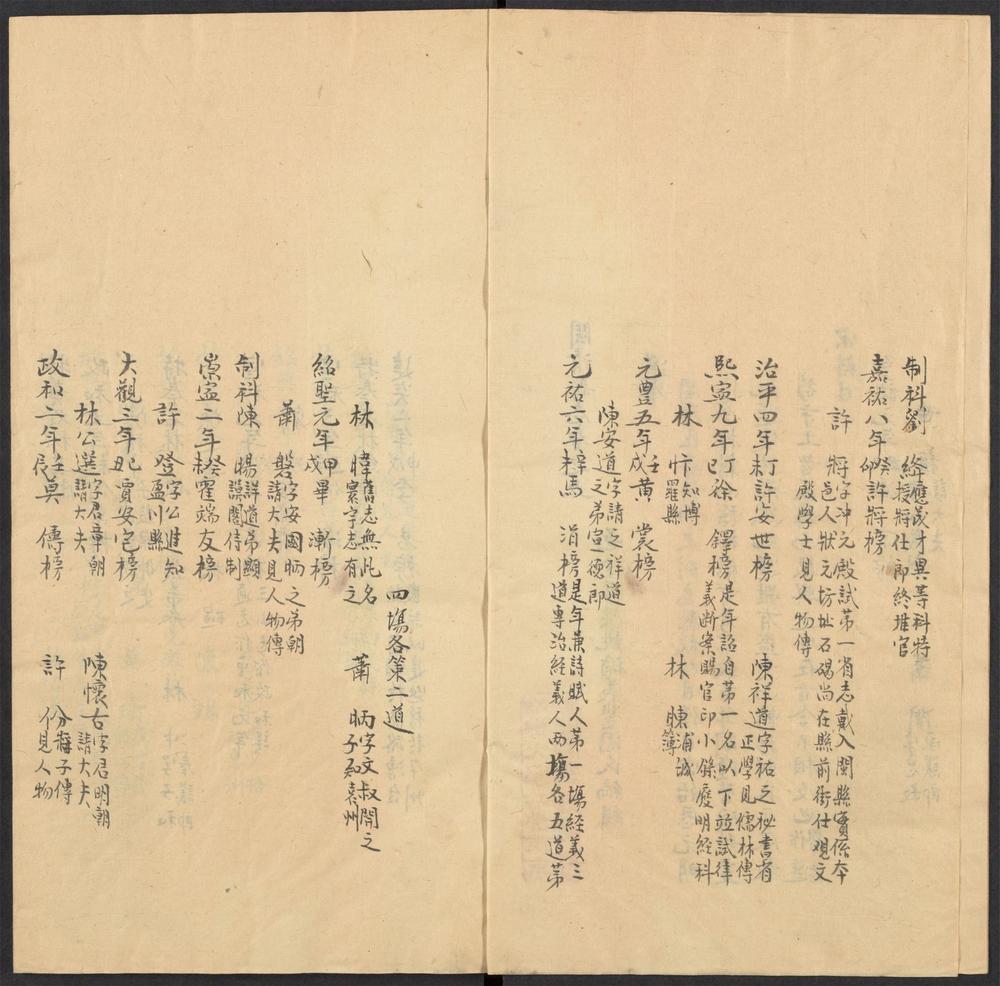 制科劉　絳應茂才異等科特授將仕郎終推官
嘉祐八年癸卯許將榜
許　將字冲元殿試第一省志戴入閩縣實係本邑人狀元坊址石碣尚在縣前街仕观文殿學士見人物傳
治平四年丁未許安世榜　陳祥道字祐之祕書省正學見儒林傳
熙寍九年丁巳徐　鐸榜是年詔自第一名以下並試律義斷案賜官印小錄廢明經科
林　忭知博羅縣　林　暕浦城簿
元豊五年壬戌黄　裳榜
陳安道字請之祥道之弟宣德郎
元祐六年辛未馬　涓榜是年兼詩賦人第一塲経義三道專治経義人两塲各五道第
四塲各第二道
林　暐舊志無此名寰宇志有之　蕭　昞字文叔開之子知袁州
紹聖元年甲戌畢　漸榜
蕭　磐字安國昞之弟朝請大夫見人物傳
制科陳　暘祥道弟顯謨閣待制
崇寍二年癸未霍端友榜
許　登字公進知盈川縣
大觀三年己丑賈安宅榜
林公選字君章朝請大夫　陳懷古字君明朝請大夫
政和二年壬辰莫　儔榜　許　份將子傳見人物